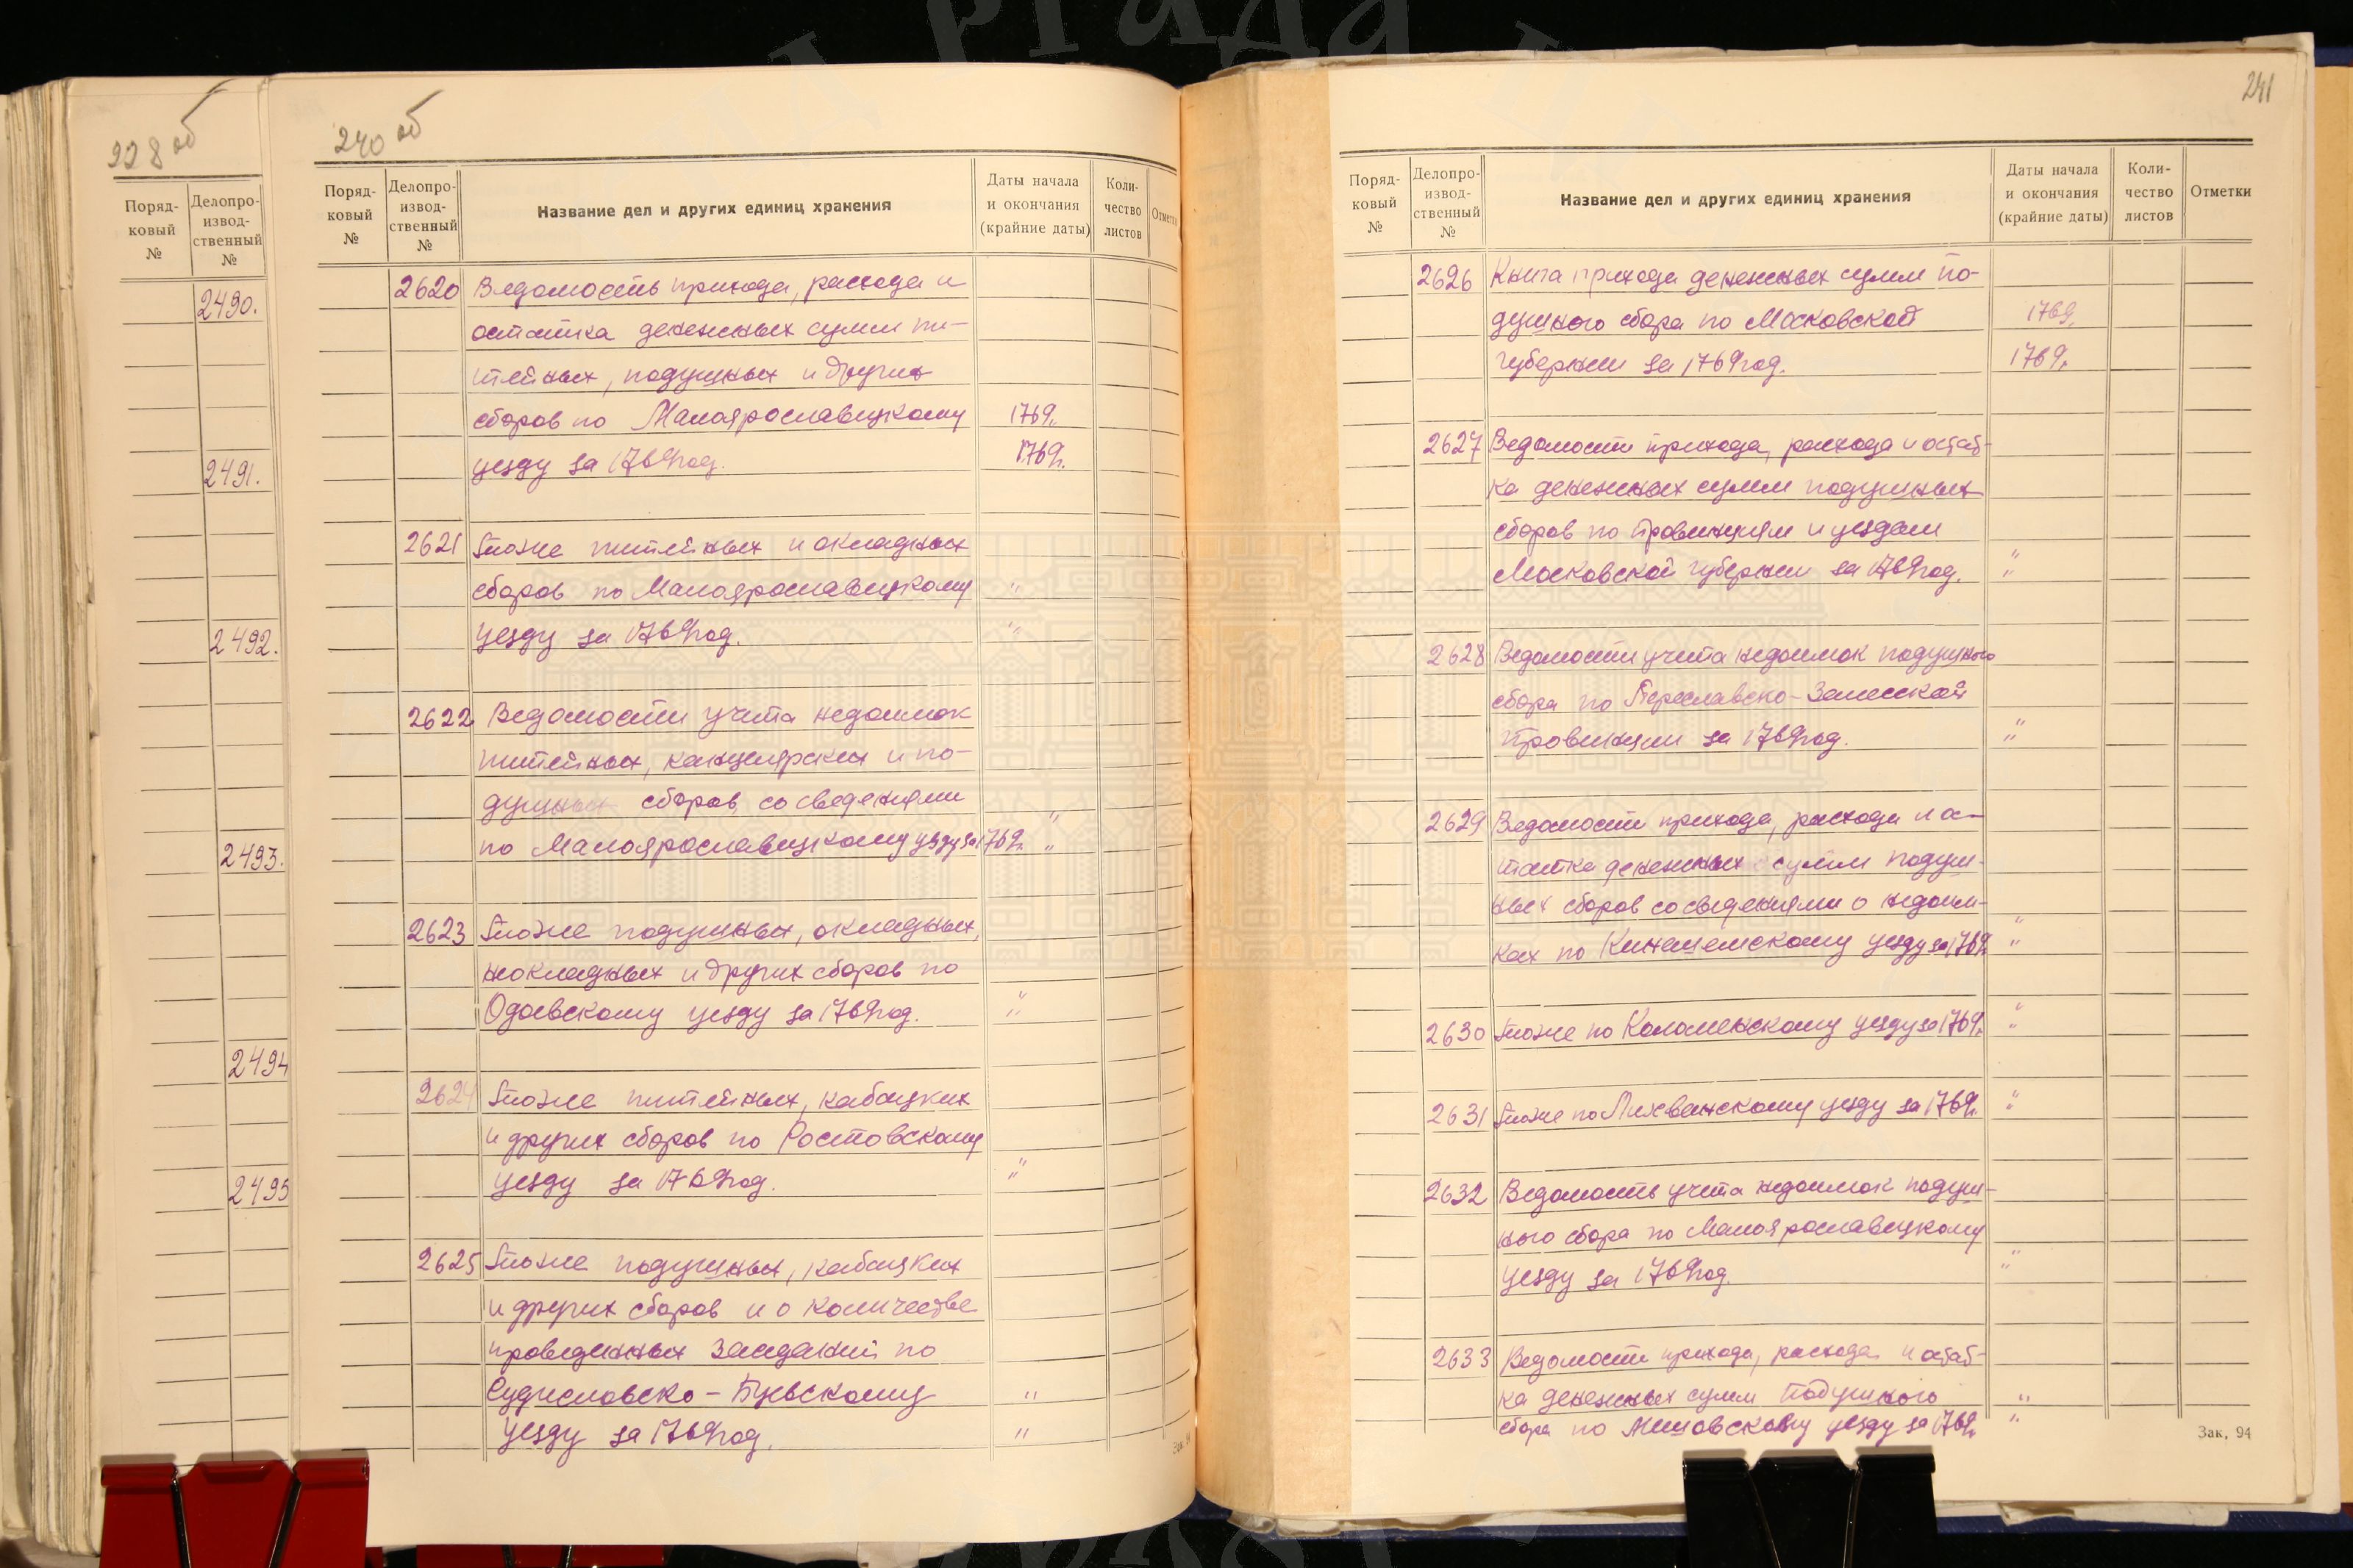 РГАДА
228 об
Поряд-
ковый
№
Делопро-
извод-
ственный
№
2490.
2491.
2492.
2493.
2494
2495
240 об
Поряд-
ковый
№
Делопро-
извод-
ственный
№
Название дел и других единиц хранения
Даты начала
и окончания
(крайние даты)
Коли-
чество
листов
2620 Ведомость прихода, расхода и
остатка денежных сумм пи-
тейных, подушных и других
сборов по Малоярославецкому 1769г.
уезду за 1769год. 1769г.
2621 Тоже питейных и окладных
сборов по Малоярославецкому "
уезду за 1769год. "
2622 Ведомости учета недоимок
питейных, канцелярских и по-
душных сборов со сведениями "
по Малоярославецкому уезду за 1769г. "
2623 Тоже подушных, окладных,
неокладных и других сборов по "
Одоевскому уезду за 1769год. "
2624 Тоже питейных, кабацких
и других сборов по Ростовскому "
уезду за 1769год. "
2625 Тоже подушных, кабацких
и других сборов и о количестве
проведенных заседаний по
Судиславско-Буевскому "
уезду за 1769год. "
241
Поряд-
ковый
№
Делопро-
извод-
ственный
№
Название дел и других единиц хранения
Даты начала
и окончания
(крайние даты)
Коли-
чество
листов
Отметки
2626 Книга прихода денежных сумм по-
душного сбора по Московской 1769г.
губернии за 1769год. 1769г.
2627 Ведомости прихода, расхода и остат-
ка денежных сумм подушных
сборов по провинциям и уездам "
Московской губернии за 1769год. "
2628 Ведомости учета недоимок подушного
сбора по Переславско-Залесской "
провинции за 1769год. "
2629 Ведомости прихода, расхода и ос-
татка денежных сумм подуш-
ных сборов со сведениями о недоим- "
ках по Кинешемскому уезду за 1769г. "
2630 Тоже по Коломенскому уезду за 1769г. "
2631 Тоже по Лихвинскому уезду за 1769г. "
2632 Ведомость учета недоимок подуш-
ного сбора по Малоярославецкому "
уезду за 1769год. "
2633 Ведомости прихода, расхода и остат-
ка денежных сумм подушного "
сбора по Мещовскому уезду за 1769г. "
Зак, 94